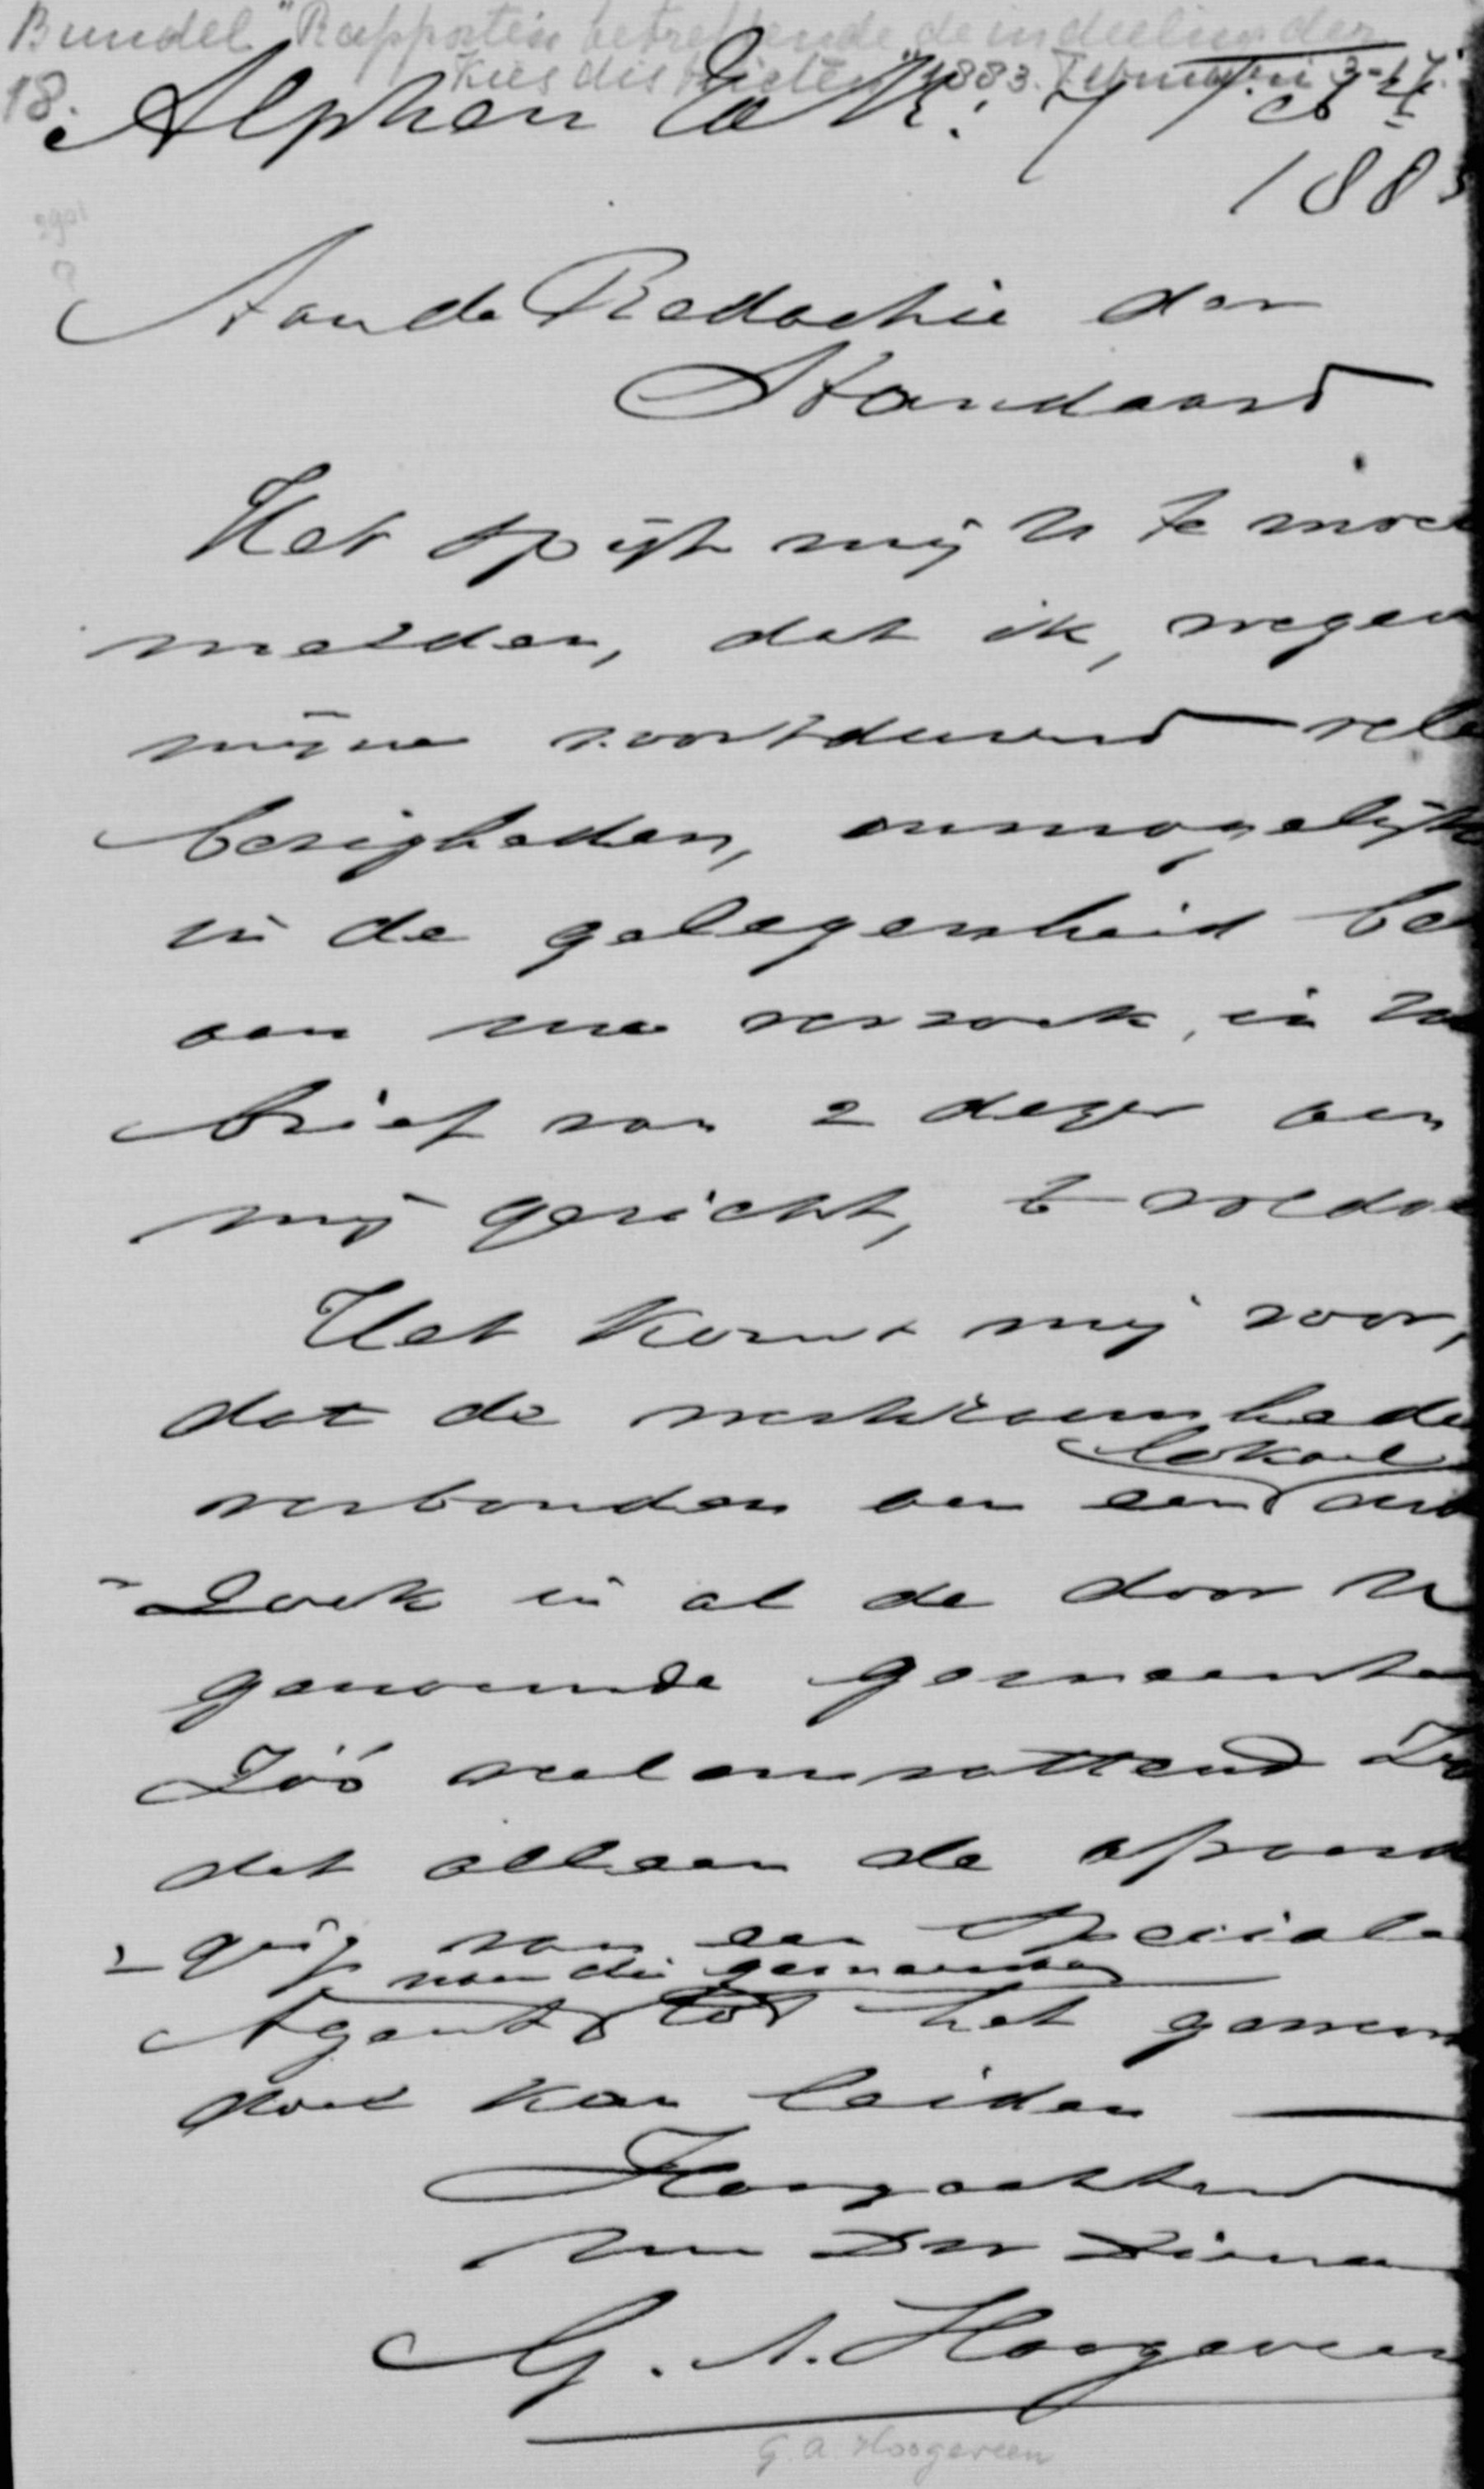 Bundel "Rapporten betreffende de indeeling der
Kiesdistricten" 1883. Februari 3-17.
18.
Alphen Z.H. 7 Feb
188
Aan de Redactie der
Standaard
Het spijt mij U te moe
melden, dat ik, wegen
mijne voortdurend vele
bezigheden, onmogelijk
in de gelegenheid be
aan uw verzoek, in Uw
brief van 2 dezer aan
mij gericht, te voldoe
Het komt mij voor,
dat de werkzaamhede
lokaal
verbonden aan een onder
zoek in al de door U
genoemde gemeente
zóó veelomvattend zij
dat alleen de afvaardi
ging van een speciale
naar die gemeenten
Agent tot het gewens
doel kan leiden
Hoogachtend
Uw Dw Diena
G. A. Hoogeveen
G. A. Hoogeveen